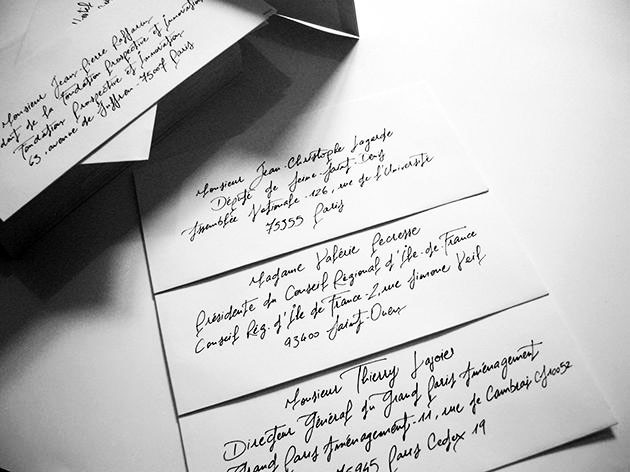 "Hôtel
Monsieur Jean-Pierre Raffarin
de la Fondation Prospective et Innovation
Fondation Prospective et Innovation
63, avenue de Suffren - 75007 Paris
Monsieur Jean-Christophe Lagarde
Député de Seine-Saint-Denis
Assemblée Nationale - 126, rue de l'Université
75355 Paris
Madame Valérie Pecresse
Présidente du Conseil Régional d'Île-de-France
Conseil Rég. d'Île de France - 2, rue Simone Veil
93400 Saint-Ouen
Monsieur Thierry Lajoie
Directeur Général du Grand Paris Aménagement
Grand Paris Aménagement - 11, rue de Cambrai CS10052
75945 Paris Cedex 19